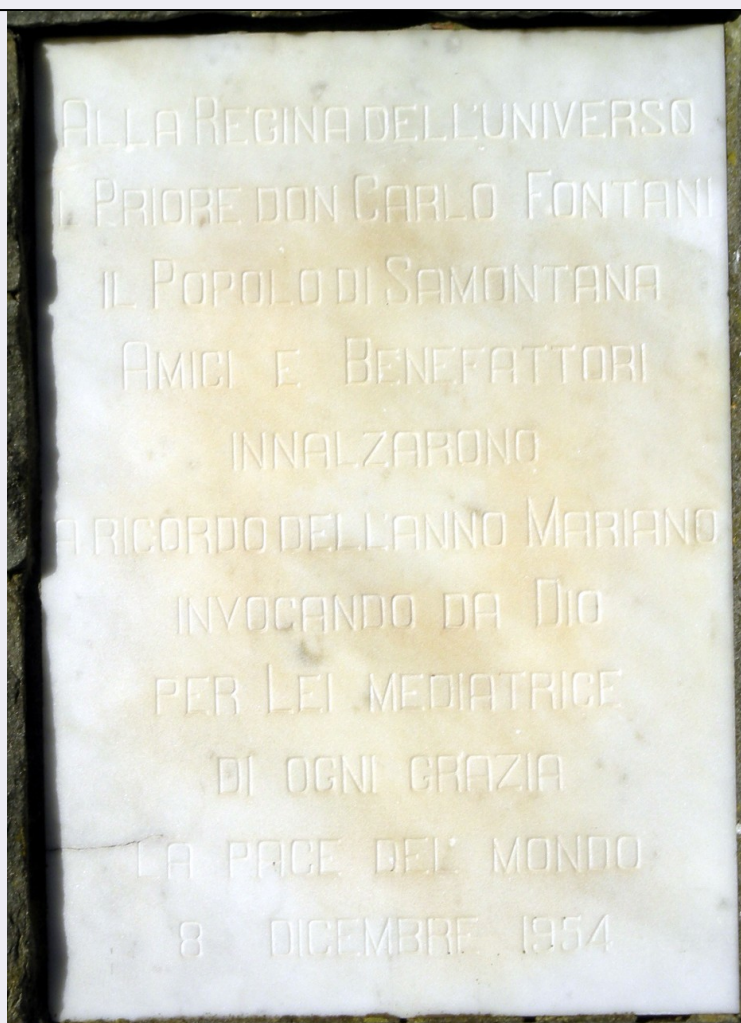 Alla Regina dell'universo
il Priore don Carlo Fontani
il Popolo di Samontana
Amici e Benefattori
innalzarono
a ricordo dell'anno Mariano
invocando da Dio
per Lei mediatrice
di ogni grazia
la pace del' mondo
8 dicembre 1954